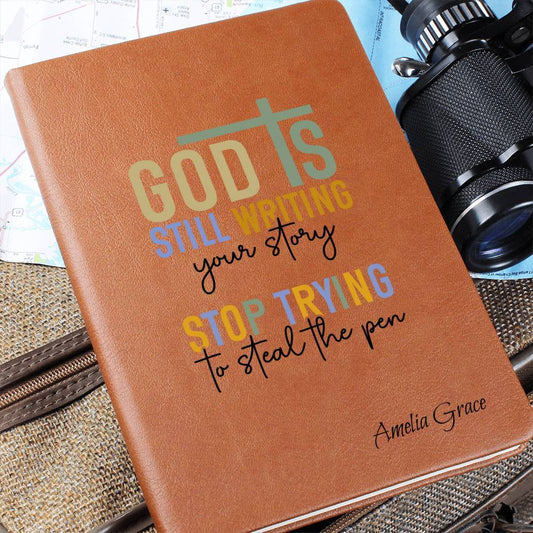 GOD IS
STILL WRITING
your story
STOP TRYING
to steal the pen
Amelia Grace